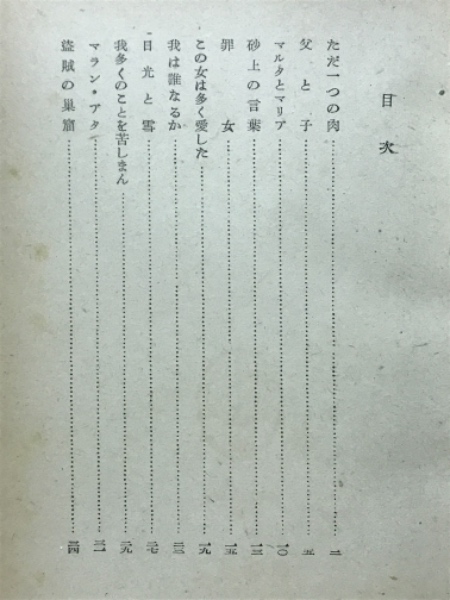 目次
ただ一つの肉……一
父と子……五
マルタとマリア……一〇
砂上の言葉……一三
罪女……一五
この女は多く愛した……一九
我は誰なるか……二三
日光と雪……二七
我多くのことを苦しまん……二九
マラン・アタ……三一
盜賊の巢窟……三四